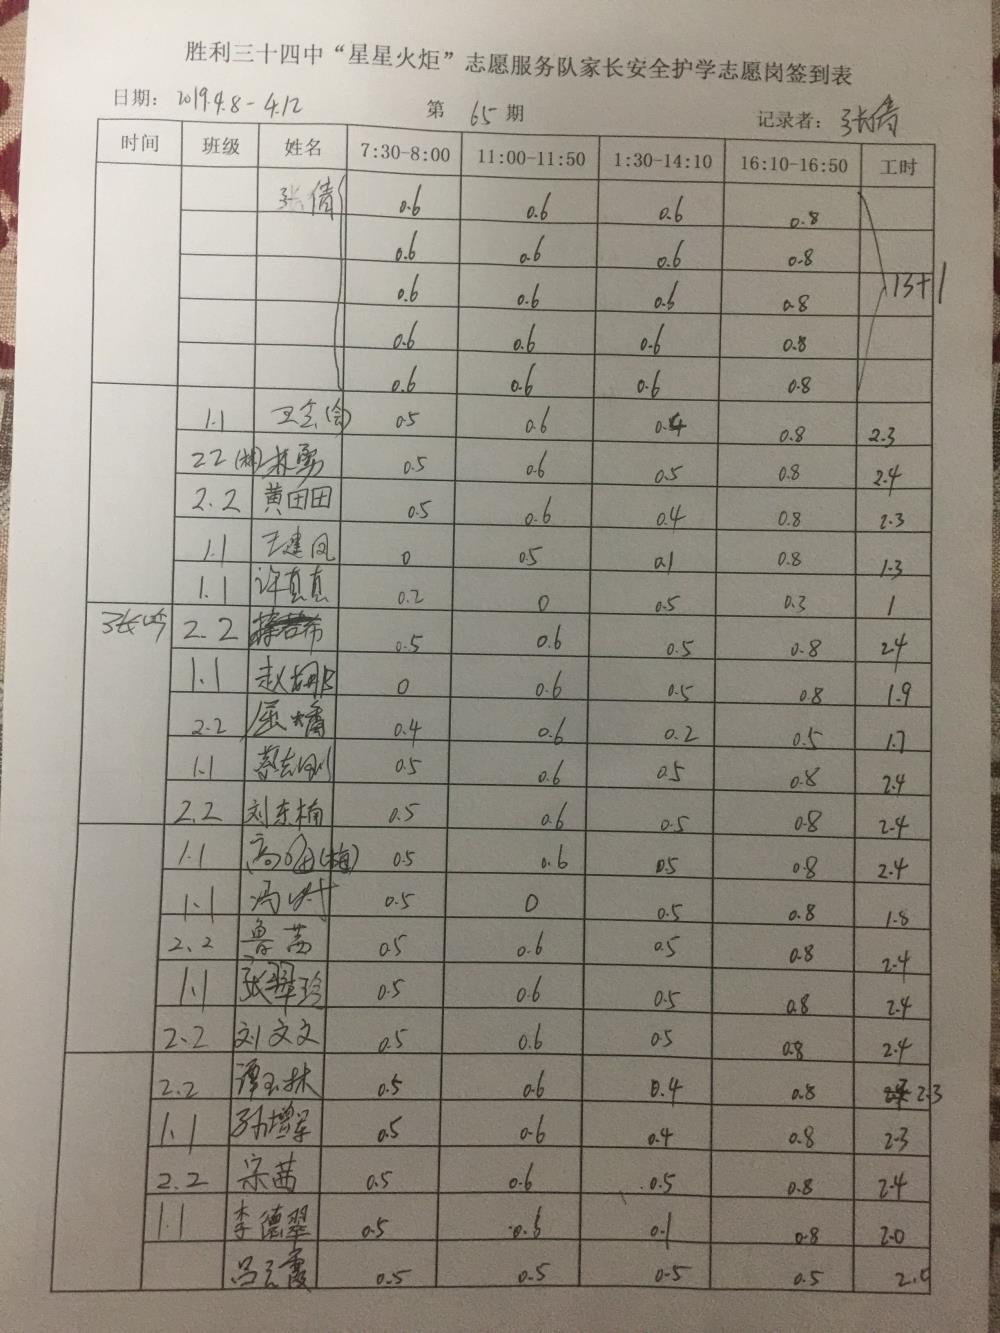 胜利三十四中“星星火炬”志愿服务队家长安全护学志愿岗签到表
日期：2019.4.8-4.12 第 65 期 记录者：张倩
时间 班级 姓名 7:30-8:00 11:00-11:50 1:30-14:10 16:10-16:50 工时
张倩 0.6 0.6 0.6 0.8
0.6 0.6 0.6 0.8
0.6 0.6 0.6 0.8 13+1
0.6 0.6 0.6 0.8
0.6 0.6 0.6 0.8
1.1 0.5 0.6 0.4 0.8 2.3
2.2 林勇 0.5 0.6 0.5 0.8 2.4
2.2 黄田田 0.5 0.6 0.4 0.8 2.3
1.1 王建凤 0 0.5 0.1 0.8 1.3
1.1 许真真 0.2 0 0.5 0.3 1
2.2 0.5 0.6 0.5 0.8 2.4
1.1 0 0.6 0.5 0.8 1.9
2.2 0.4 0.6 0.2 0.5 1.7
1.1 0.5 0.6 0.5 0.8 2.4
2.2 刘东楠 0.5 0.6 0.5 0.8 2.4
1.1 0.5 0.6 0.5 0.8 2.4
1.1 0.5 0 0.5 0.8 1.8
2.2 鲁荔 0.5 0.6 0.5 0.8 2.4
1.1 张翠珍 0.5 0.6 0.5 0.8 2.4
2.2 刘文文 0.5 0.6 0.5 0.8 2.4
2.2 谭玉林 0.5 0.6 0.4 0.8 2.3
1.1 孙增军 0.5 0.6 0.4 0.8 2.3
2.2 宋茜 0.5 0.6 0.5 0.8 2.4
1.1 李德翠 0.5 0.6 0.1 0.8 2.0
吕云霞 0.5 0.5 0.5 0.5